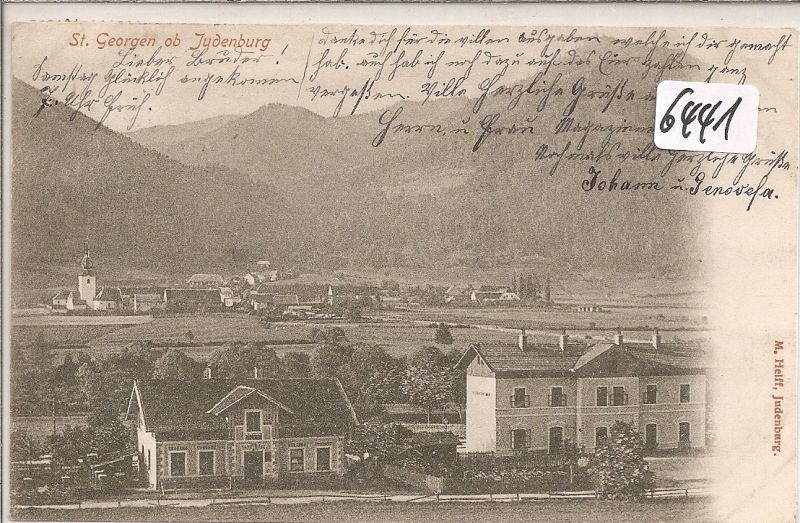 St. Georgen ob Judenburg
Lieber Bruder!
Samstag Glücklich angekommen
7 Uhr früh.
danke dich für die villen Ausgaben welche ich dir gemacht
hab. auch hab ich noch dazu auf das Eier Zahlen ganz
vergeßen. Ville Herzliche Grüße
Herrn, u Frau
Nochmals ville Herzliche Grüße
Johann u. Genovefa.
6441
M. Helff, Judenburg.